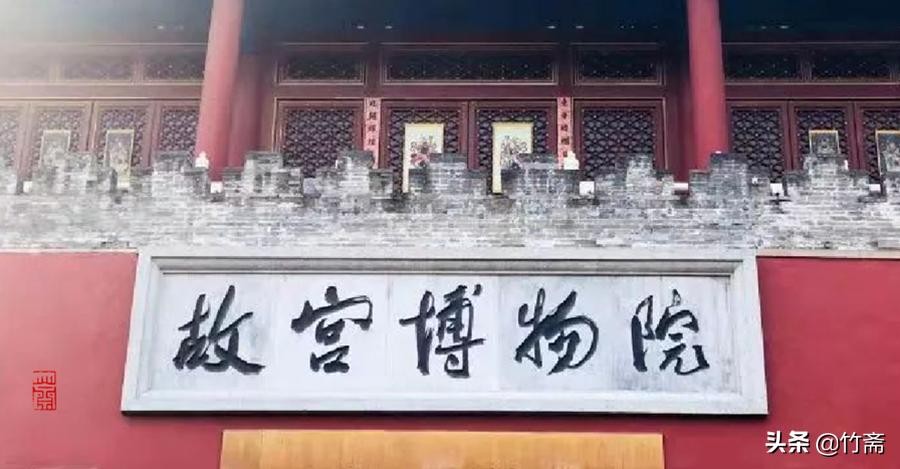 故宫博物院
头条 @竹斋